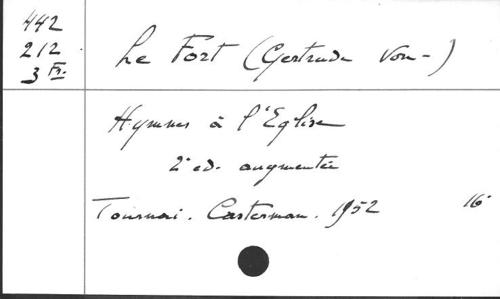 442
212
3 Fr.
Le Fort (Gertrude von-)
Hymnes à l'Eglise
2e ed. augmentée
Tournai. Casterman. 1952 16°